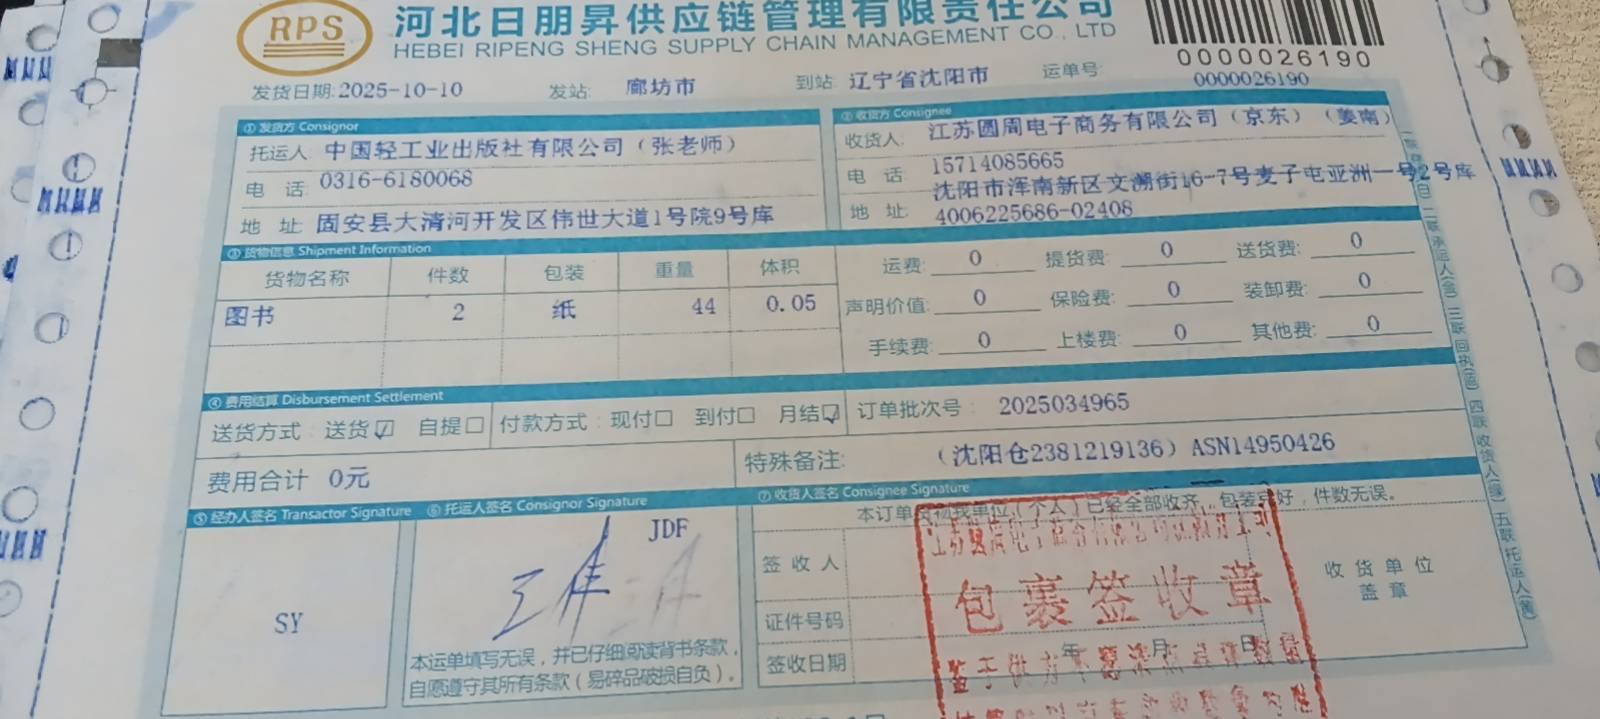 RPS
河北日朋昇供应链管理有限责任公司
HEBEI RIPENG SHENG SUPPLY CHAIN MANAGEMENT CO., LTD
0000026190
发货日期: 2025-10-10 发站: 廊坊市 到站: 辽宁省沈阳市 运单号: 0000026190
① 发货方 Consignor
托运人 中国轻工业出版社有限公司（张老师）
电 话 0316-6180068
地 址 固安县大清河开发区伟世大道1号院9号库
② 收货方 Consignee
收货人: 江苏圆周电子商务有限公司（京东）（姜南）
电 话: 15714085665
地 址: 沈阳市浑南新区文溯街16-7号麦子屯亚洲一号2号库
4006225686-02408
③ 货物信息 Shipment Information
货物名称 件数 包装 重量 体积
图书 2 纸 44 0.05
运费: 0 提货费: 0 送货费: 0
声明价值: 0 保险费: 0 装卸费: 0
手续费: 0 上楼费: 0 其他费: 0
④ 费用结算 Disbursement Settlement
送货方式: 送货☑ 自提□ 付款方式: 现付□ 到付□ 月结☑ 订单批次号: 2025034965
费用合计 0元 特殊备注: （沈阳仓2381219136）ASN14950426
⑤ 经办人签名 Transactor Signature
SY
⑥ 托运人签名 Consignor Signature
JDF
本运单填写无误，并已仔细阅读背书条款，
自愿遵守其所有条款（易碎品破损自负）。
⑦ 收货人签名 Consignee Signature
本订单货物我单位（个人）已经全部收齐，包装完好，件数无误。
签 收 人
证件号码
签收日期 年 月 日
收 货 单 位
盖 章
包裹签收章
二联 承运人 三联 回执 四联 收货人 五联 托运人